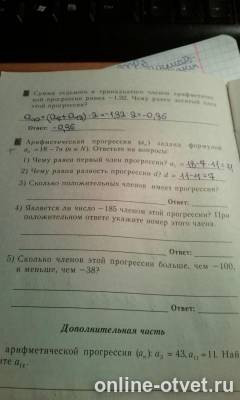 Сумма седьмого и тринадцатого членов арифмети-
ской прогрессии равна −1,92. Чему равен десятый член
этой прогрессии?
Ответ: −0,96
Арифметическая прогрессия (aₙ) задана формулой
aₙ = 18 − 7n (n ∈ N). Ответьте на вопросы:
1) Чему равен первый член прогрессии? a₁ = 18-7·1=11
2) Чему равна разность прогрессии d? d =
3) Сколько положительных членов имеет прогрессия?
Ответ:
4) Является ли число −185 членом этой прогрессии? При
положительном ответе укажите номер этого члена.
Ответ:
5) Сколько членов этой прогрессии больше, чем −100,
и меньше, чем −38?
Ответ:
Дополнительная часть
арифметической прогрессии (aₙ): a₃ = 43, a₁₁ = 11. Най
те a₁₇.
online-otvet.ru